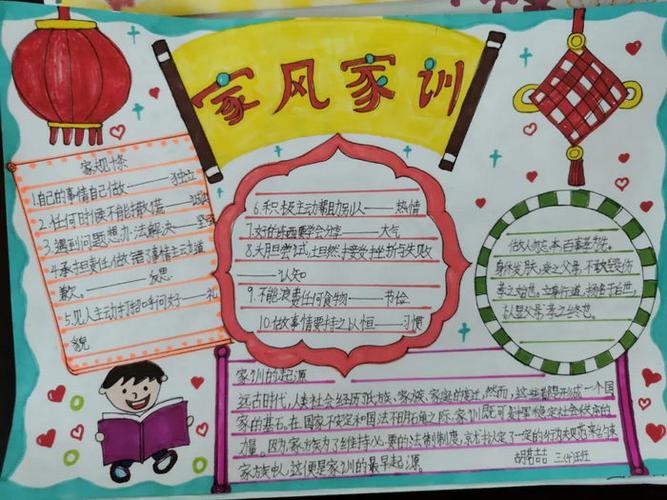 家风家训
家规十条
1.自己的事情自己做——独立
2.任何时候不能撒谎——
3.遇到问题想办法解决——
4.承担责任,做错了事情主动道
歉。——反思
5.见人主动打招呼问好——礼
貌
6.积极主动帮助别人——热情
7.好的东西要学会分享——大气
8.大胆尝试,坦然接受挫折与失败
——认知
9.不能浪费任何食物——节俭
10.做事情要持之以恒——习惯
做人勿忘本,百事孝为先。
身体发肤,受之父母,不敢毁伤
孝之始也。立身行道,扬名于后世,
以显父母,孝之终也。
家训的起源
远古时代,人类社会经历氏族、家族、家庭的变迁,然而,这些都形成一个国
家的基石。在国家不安定和国法不明确之际,家训既可发挥稳定社会秩序的
力量。因为家族为了维持必要的法制制度,就拟定了一定的行为规范来约束
家族中人,这便是家训的最早起源。